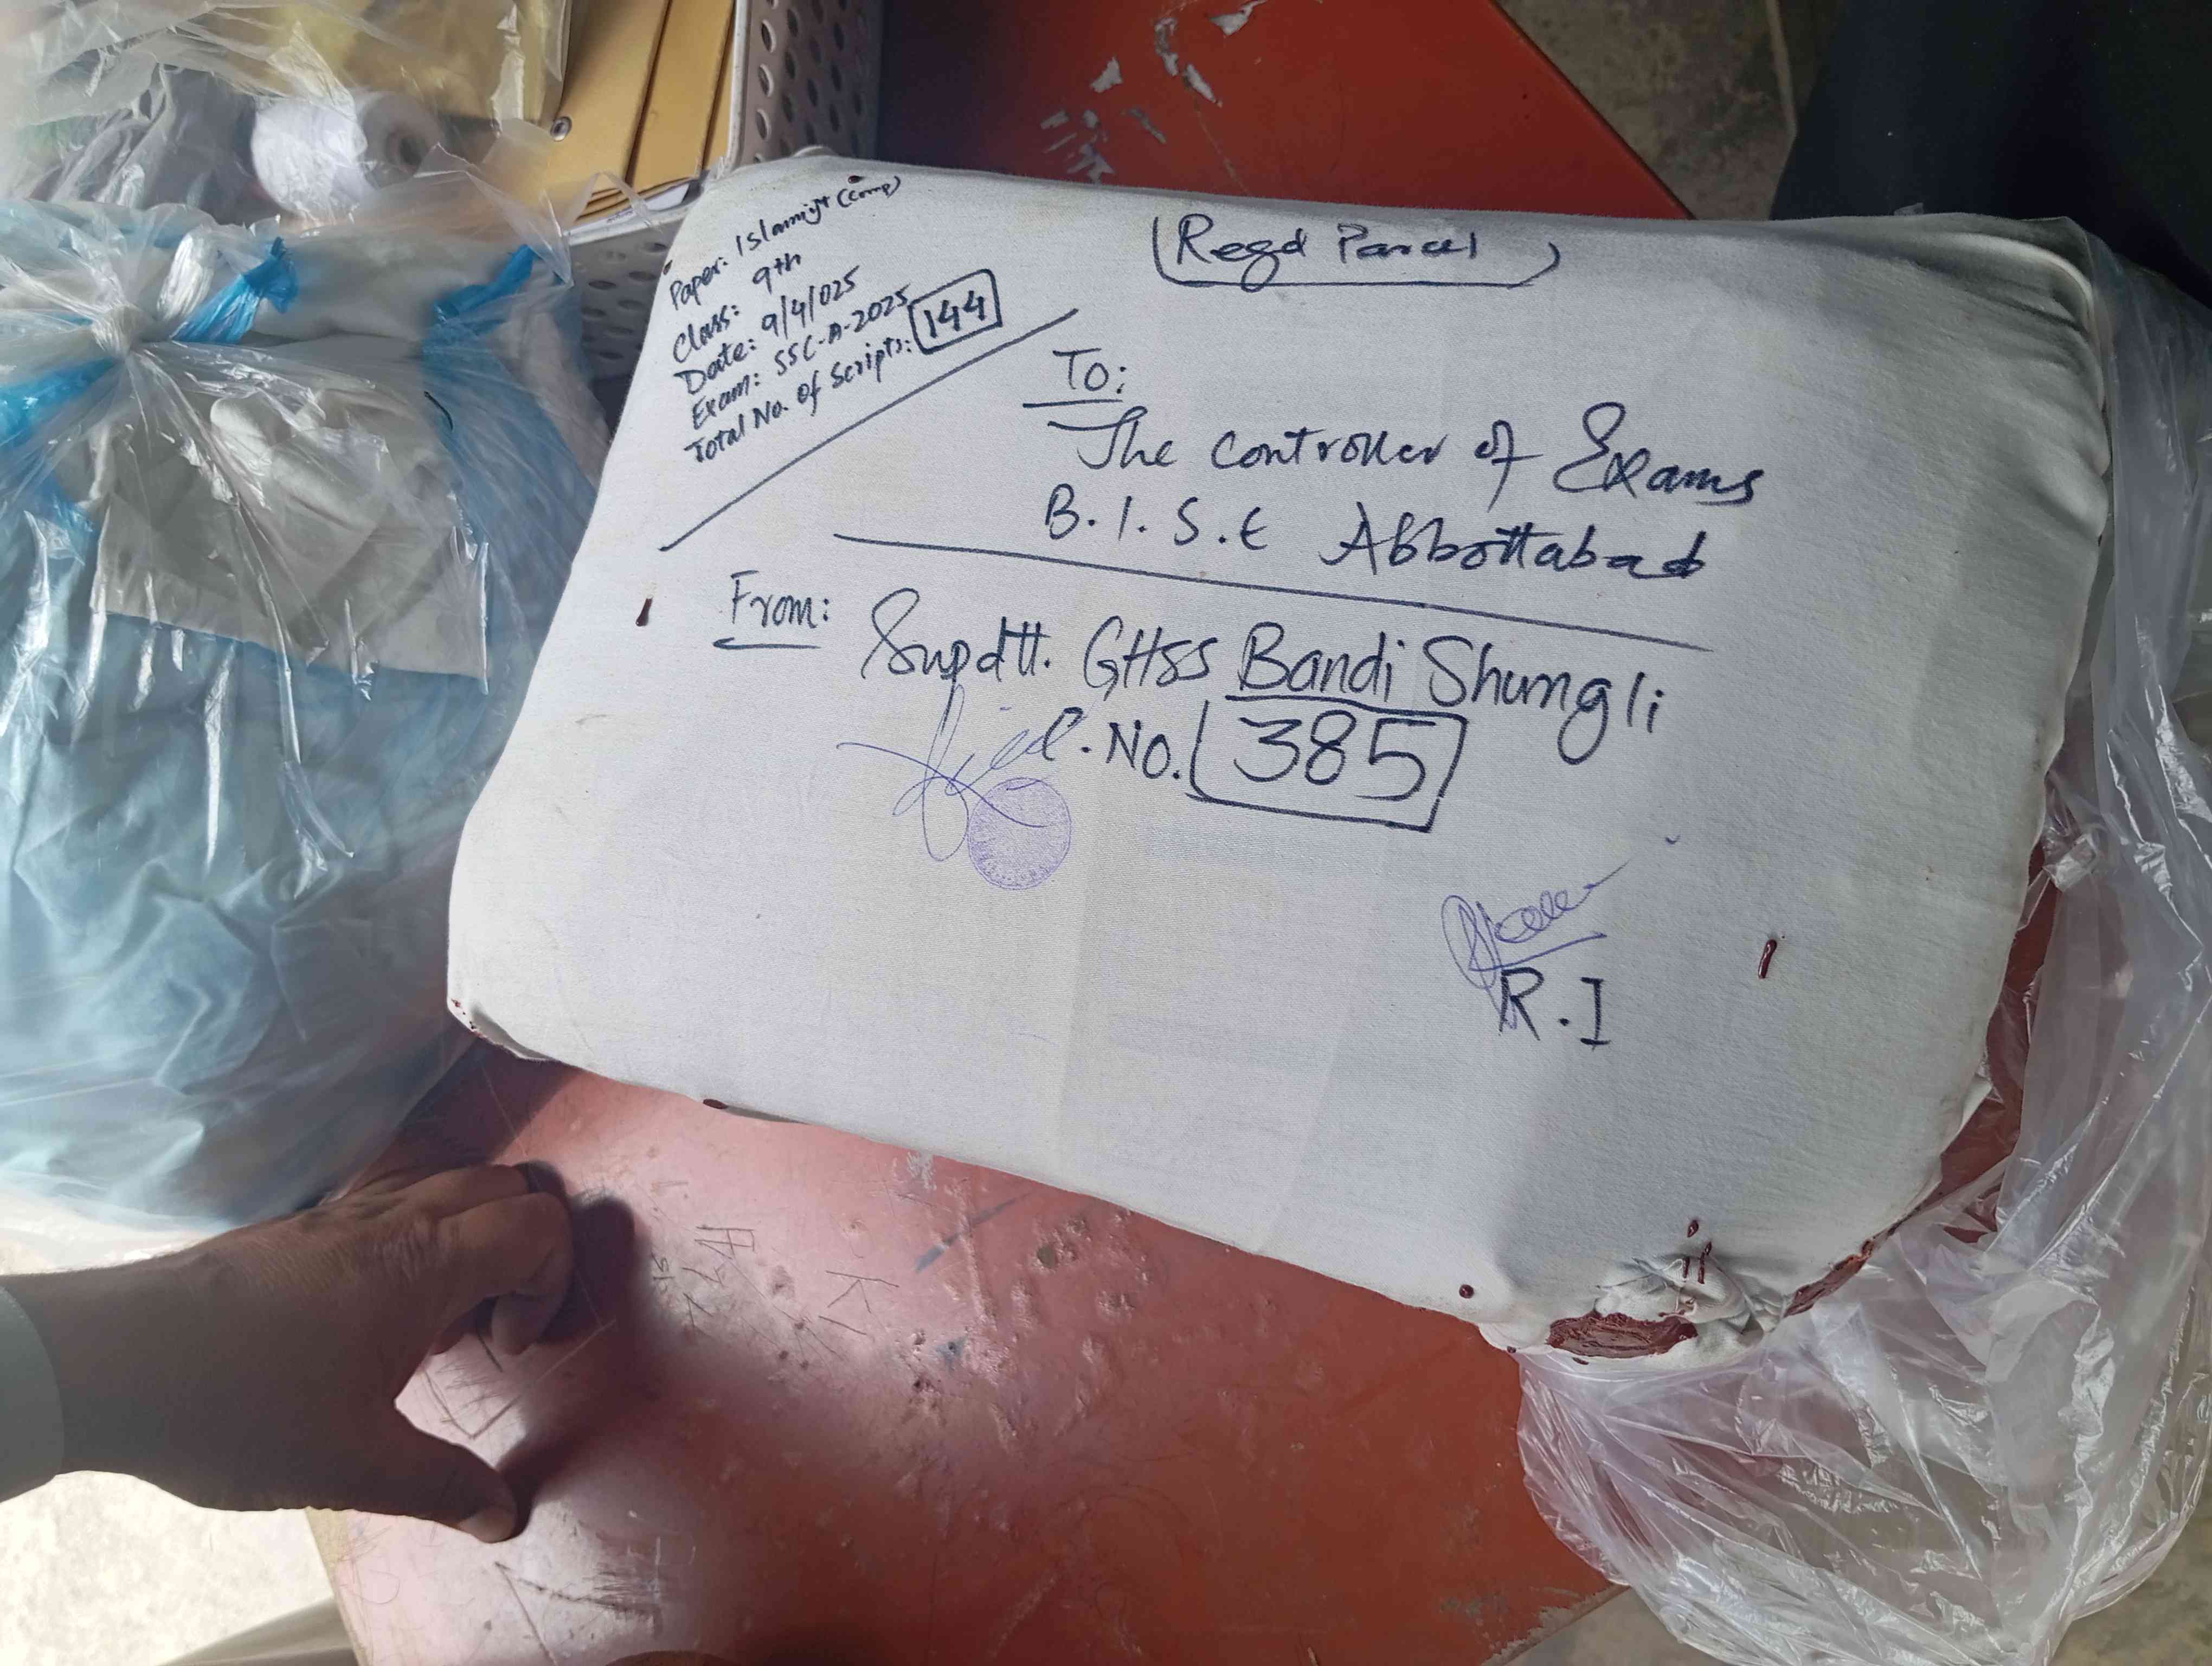 Regd Parcel
Paper: Islamiyt (Comp)
Class: 9th
Date: 9/4/025
Exam: SSC-A-2025
Total No. of Scripts: 144
To:
The controller of Exams
B.I.S.E Abbottabad
From: Supdtt. GHSS Bandi Shungli
No. 385
R.I